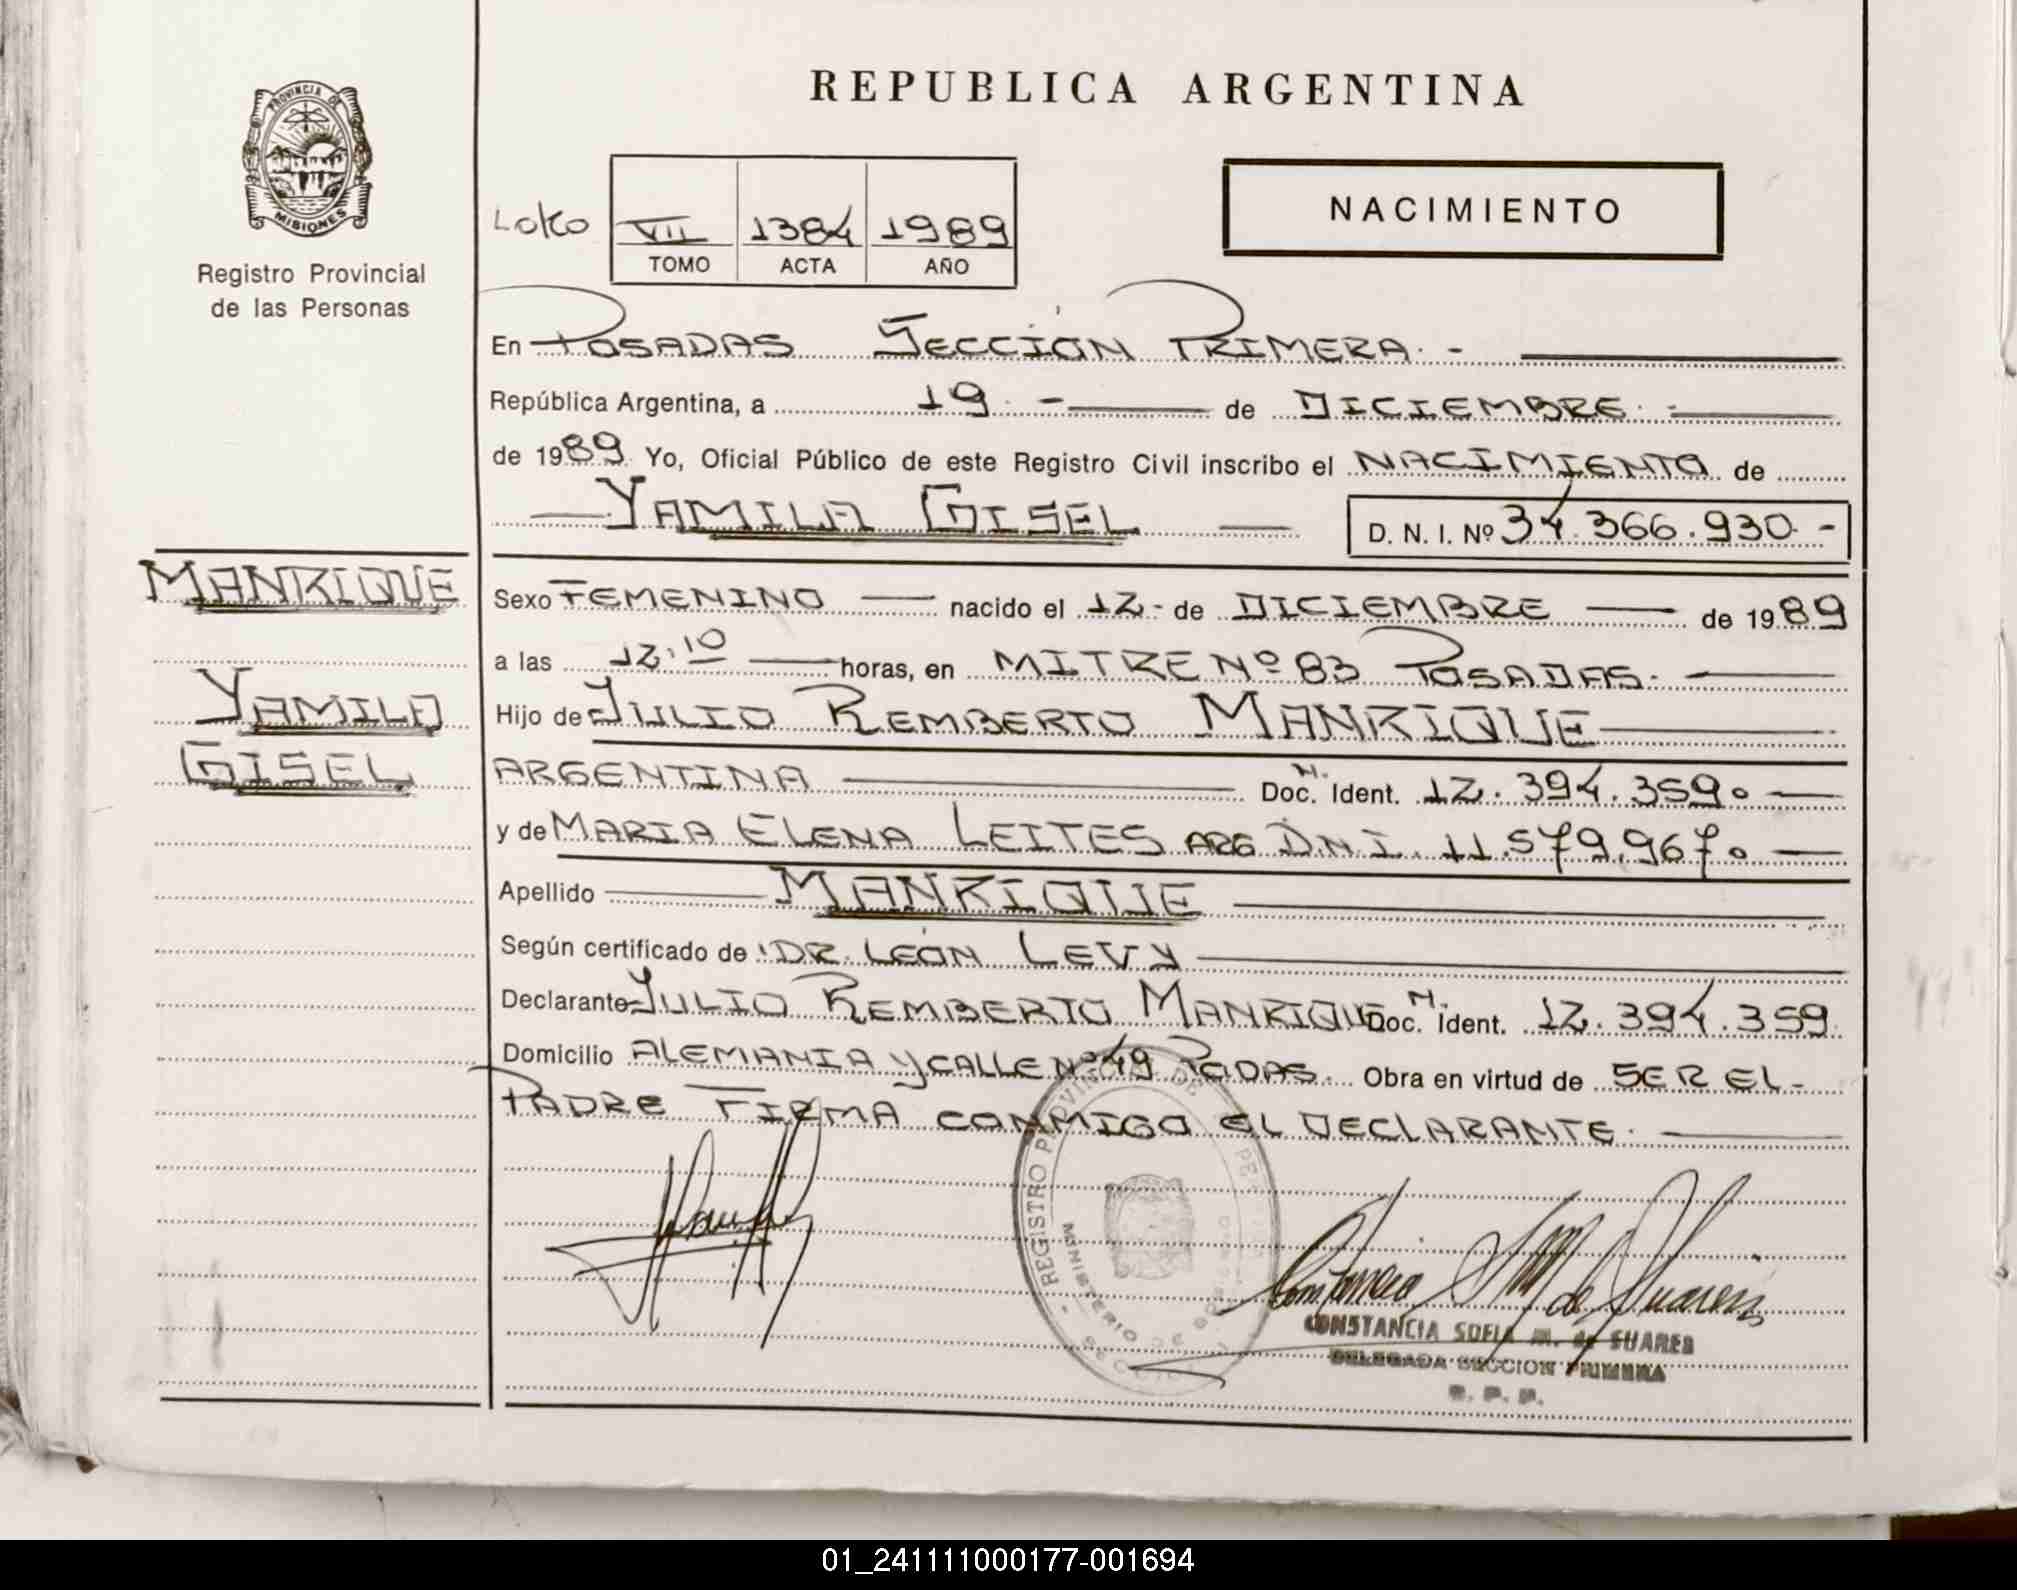 REPUBLICA ARGENTINA
PROVINCIA DE
MISIONES
Registro Provincial
de las Personas
VII 1384 1989
TOMO ACTA AÑO
NACIMIENTO
En POSADAS SECCION PRIMERA.-
República Argentina, a 19.- de DICIEMBRE.-
de 1989 Yo, Oficial Público de este Registro Civil inscribo el NACIMIENTO de
YAMILA GISEL
D. N. I. Nº 34.366.930.-
MANRIQUE
YAMILA
GISEL
Sexo FEMENINO nacido el 12- de DICIEMBRE de 1989
a las 12,10 horas, en MITRE Nº 83 POSADAS.
Hijo de JULIO REMBERTO MANRIQUE
ARGENTINA Doc. M. Ident. 12.394.359.
y de MARIA ELENA LEITES ARG D.N.I. 11.579.967.
Apellido MANRIQUE
Según certificado de DR. LEON LEVY
Declarante JULIO REMBERTO MANRIQUE Doc. M. Ident. 12.394.359
Domicilio ALEMANIA Y CALLE Nº 49 PDAS. Obra en virtud de SER EL-
PADRE FIRMA CONMIGO EL DECLARANTE.
REGISTRO PROVINCIAL DE
MINISTERIO DE GOBIERNO
CONSTANCIA SOFIA M. de SUARES
DELEGADA SECCION PRIMERA
R. P. P.
01_241111000177-001694